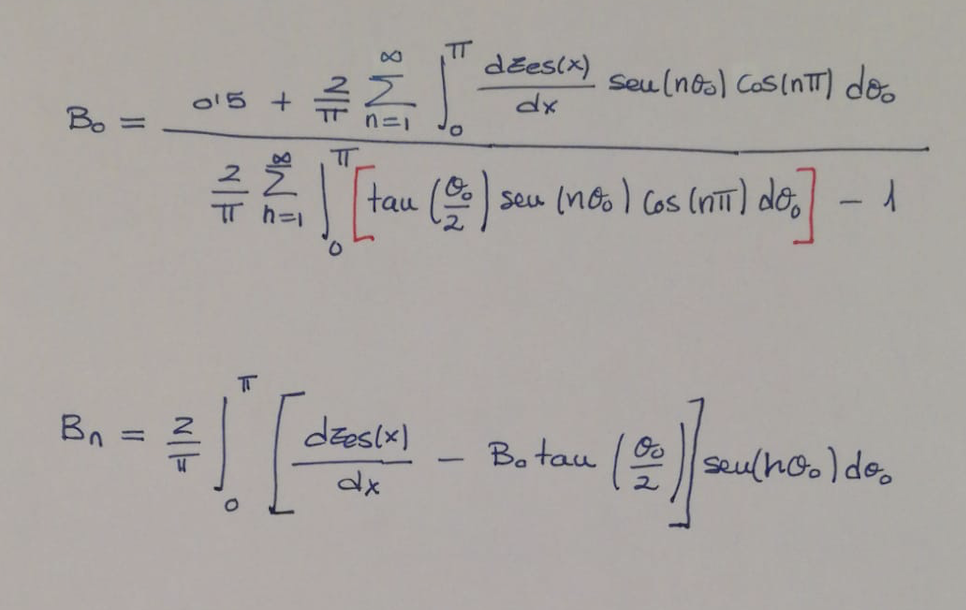 B₀ = \frac{0'5 + \frac{2}{π} \sum_{n=1}^{∞} \int_0^π \frac{dzes(x)}{dx} sen(nθ₀) cos(nπ) dθ₀}{\frac{2}{π} \sum_{n=1}^{∞} \int_0^π [tan(\frac{θ₀}{2}) sen(nθ₀) cos(nπ) dθ₀] - 1}
Bₙ = \frac{2}{π} \int_0^π [\frac{dzes(x)}{dx} - B₀ tan(\frac{θ₀}{2})] sen(nθ₀) dθ₀